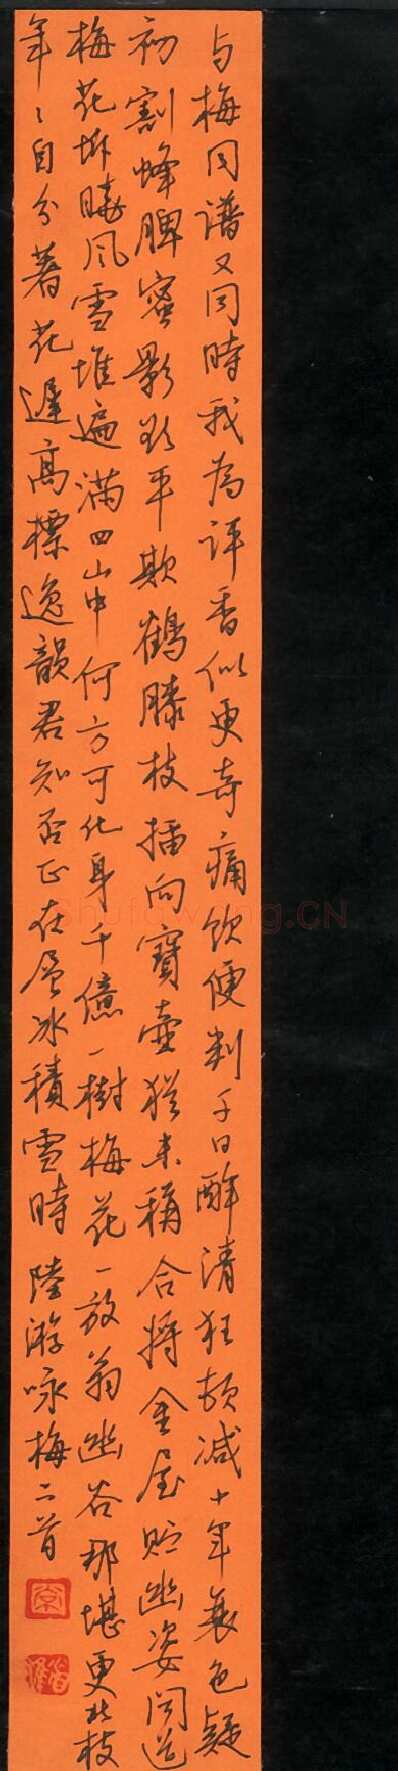 与梅同谱又同時我為评香似更奇痛飲便判千日醉清狂頓減十年衰色疑
初割蜂脾蜜影欲平欺鶴膝枝插向寶壺猶未稱合将金屋貯幽姿闻道
梅花坼曉风雪堆遍满四山中何方可化身千億一樹梅花一放翁幽谷那堪更北枝
年々自分著花遲高標逸韻君知否正在层冰積雪時陸游咏梅二首
Shufawang.CN